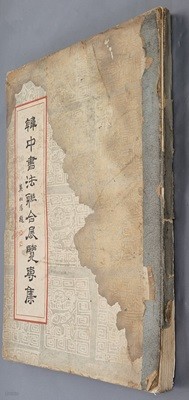 韓中書法聯合展覽專集